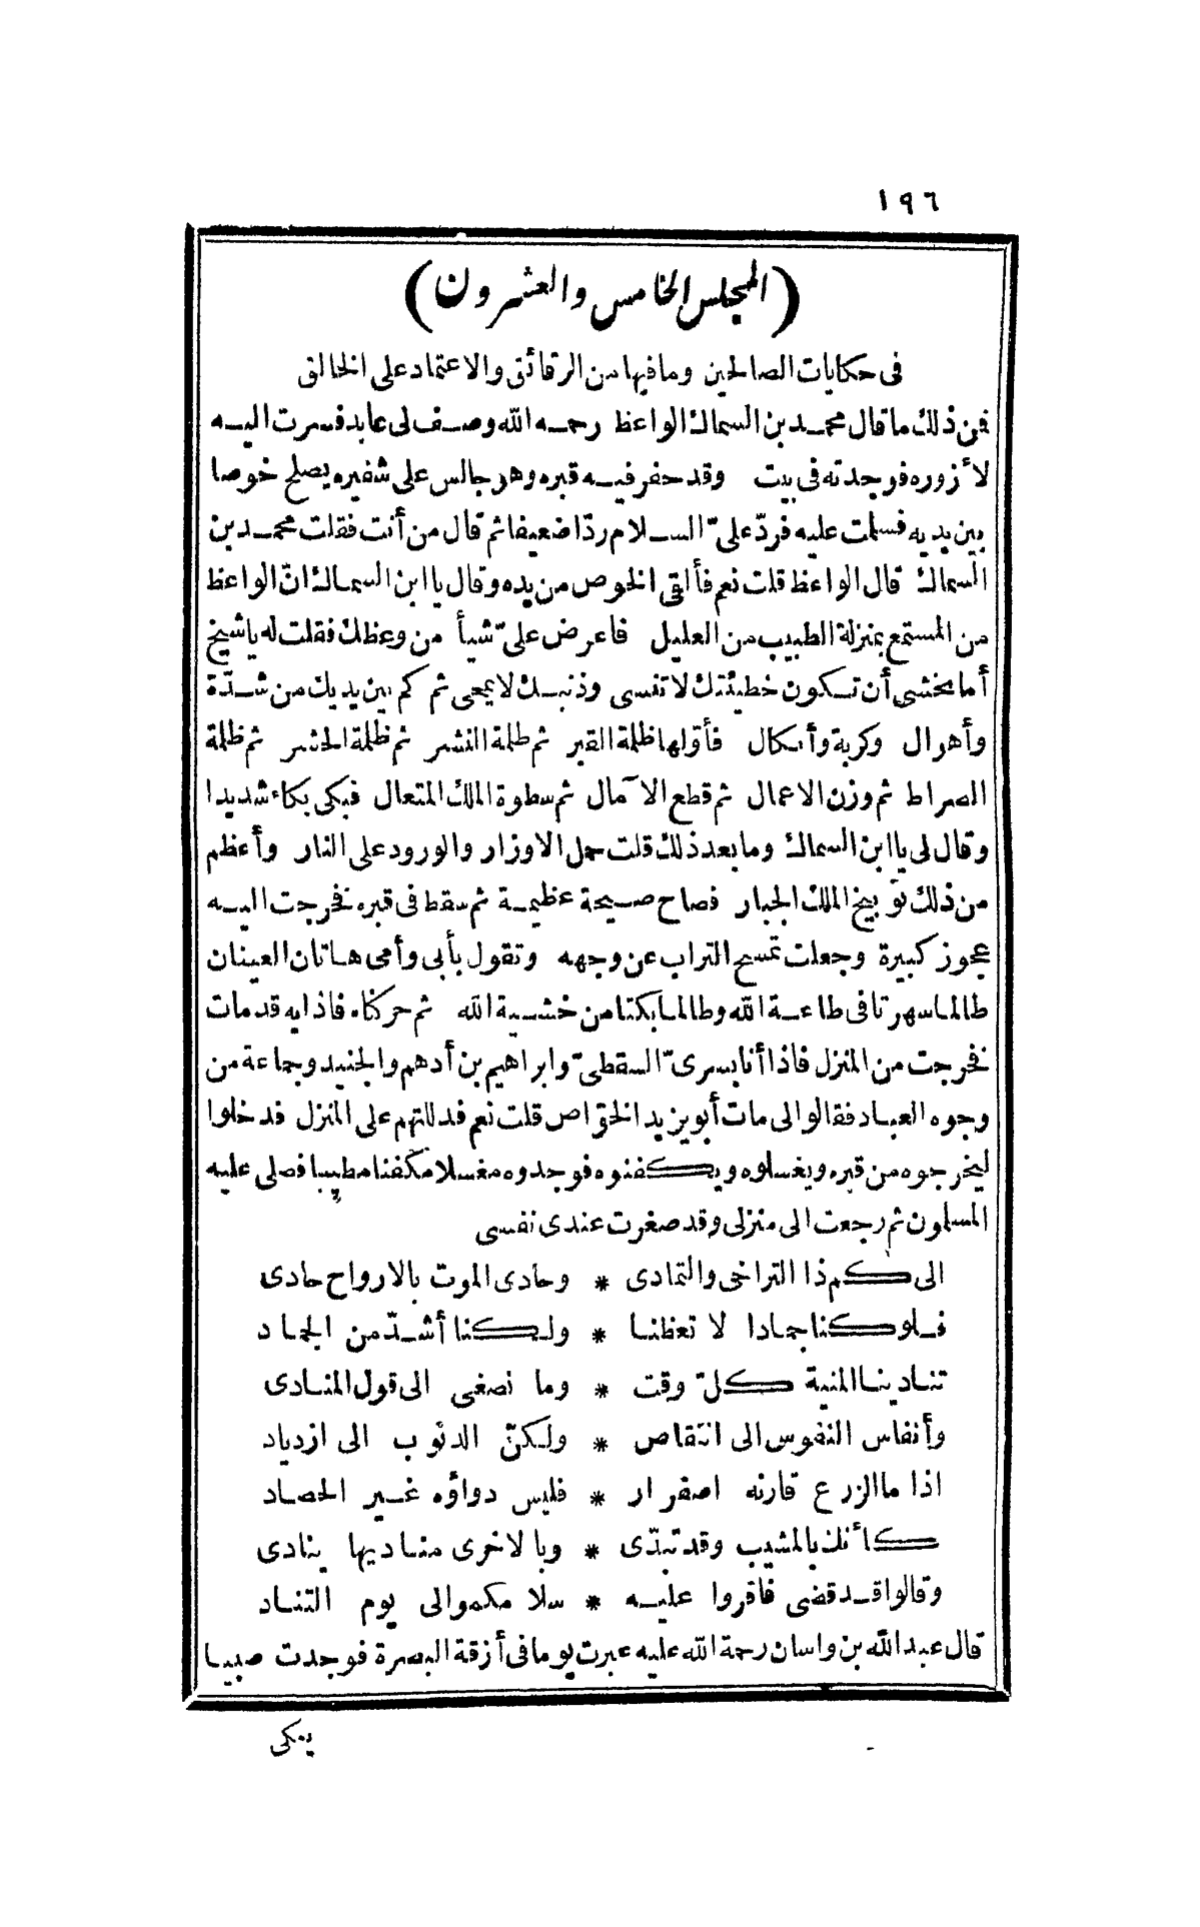 ١٩٦
(المجلس الخامس والعشرون)
فى حكايات الصالحين وما فيها من الرقائق والاعتماد على الخالق
فمن ذلك ما قال محمد بن السماك الواعظ رحمه الله وصف لى عابد فسرت اليه
لأزوره فوجدته فى بيت وقد حفر فيه قبره وهو جالس على شفيره يصلح خوصا
بين يديه فسلمت عليه فردّ علىّ السلام ردّا ضعيفا ثم قال من أنت فقلت محمد بن
السماك قال الواعظ قلت نعم فألقى الخوص من يده وقال يا ابن السماك انّ الواعظ
من المستمع بمنزلة الطبيب من العليل فاعرض علىّ شيأ من وعظك فقلت له يا شيخ
أما تخشى أن تكون خطيئتك لا تنسى وذنبك لا يمحى ثم كم بين يديك من شدّة
وأهوال وكربة وأنكال فأولها ظلمة القبر ثم ظلمة النشر ثم ظلمة الحشر ثم ظلمة
الصراط ثم وزن الاعمال ثم قطع الآمال ثم سطوة الملك المتعال فبكى بكاء شديدا
وقال لى يا ابن السماك وما بعد ذلك قلت حمل الاوزار والورود على النار وأعظم
من ذلك توبيخ الملك الجبار فصاح صيحة عظيمة ثم سقط فى قبره فخرجت اليه
عجوز كبيرة وجعلت تمسح التراب عن وجهه وتقول بأبى وأمى هاتان العينان
طالما سهرتا فى طاعة الله وطالما بكتا من خشية الله ثم حركناه فاذا به قد مات
فخرجت من المنزل فاذا أنا بسرىّ السقطىّ وابراهيم بن أدهم والجنيد وجماعة من
وجوه العباد فقالوا لى مات أبو يزيد الخوّاص قلت نعم فدللتهم على المنزل فدخلوا
ليخرجوه من قبره ويغسلوه ويكفنوه فوجدوه مغسلا مكفنا مطيبا فصلى عليه
المسلمون ثم رجعت الى منزلى وقد صغرت عندى نفسى
الى كم ذا التراخى والتمادى * وحادى الموت بالارواح حادى
فلو كنا جمادا لا تعظنا * ولكنا أشدّ من الجماد
تنادينا المنية كلّ وقت * وما نصغى الى قول المنادى
وأنفاس النفوس الى انتقاص * ولكنّ الذنوب الى ازدياد
اذا ما الزرع قارنه اصفرار * فليس دواؤه غير الحصاد
كأنك بالمشيب وقد تبدّى * وبالاخرى مناديها ينادى
وقالوا قد قضى فاقروا عليه * سلامكمو الى يوم التناد
قال عبد الله بن واسان رحمة الله عليه عبرت يوما فى أزقة البصرة فوجدت صبيا
يبكى